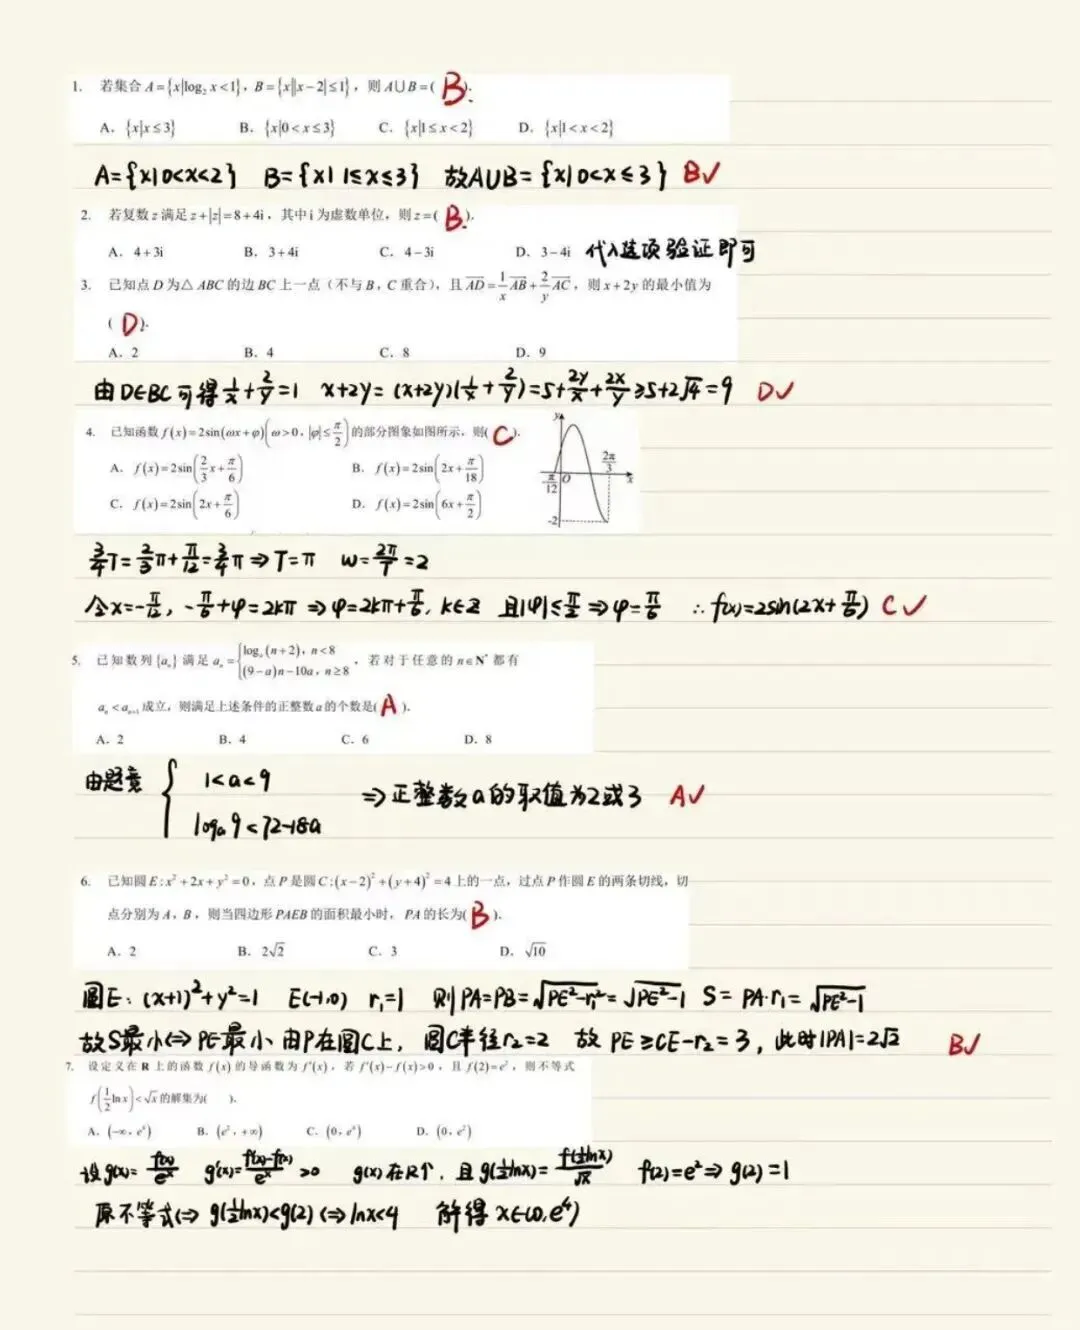 1. 若集合 A={x|log₂ x<1}, B={x||x-2|≤1}, 则 A∪B=( B ).
A. {x|x≤3} B. {x|0<x≤3} C. {x|1≤x<2} D. {x|1<x<2}
A={x|0<x<2} B={x|1≤x≤3} 故A∪B={x|0<x≤3} B✓
2. 若复数 z 满足 z+|z|=8+4i, 其中 i 为虚数单位, 则 z=( B ).
A. 4+3i B. 3+4i C. 4-3i D. 3-4i 代入选项验证即可
3. 已知点 D 为△ ABC 的边 BC 上一点（不与 B, C 重合）, 且 AD=1/x AB+2/y AC, 则 x+2y 的最小值为
( D ).
A. 2 B. 4 C. 8 D. 9
由D∈BC可得 1/x+2/y=1 x+2y=(x+2y)(1/x+2/y)=5+2y/x+2x/y≥5+2√4=9 D✓
4. 已知函数 f(x)=2sin(ωx+φ)(ω>0, |φ|≤π/2) 的部分图象如图所示, 则( C ).
A. f(x)=2sin(2/3 x+π/6) B. f(x)=2sin(2x+π/18)
C. f(x)=2sin(2x+π/6) D. f(x)=2sin(6x+π/2)
y
2π/3
π/12 O x
-2
3/4 T=2/3 π+π/12=3/4 π⇒T=π ω=2π/T=2
令x=-π/12, -π/6+φ=2kπ⇒φ=2kπ+π/6, k∈Z 且|φ|≤π/2⇒φ=π/6 ∴f(x)=2sin(2x+π/6) C✓
5. 已知数列{aₙ}满足 aₙ={logₐ(n+2), n<8
(9-a)n-10a, n≥8, 若对于任意的 n∈N* 都有
aₙ<aₙ₊₁ 成立, 则满足上述条件的正整数 a 的个数是( A ).
A. 2 B. 4 C. 6 D. 8
由题意 { 1<a<9
logₐ9<72-18a ⇒正整数a的取值为2或3 A✓
6. 已知圆 E:x²+2x+y²=0, 点 P 是圆 C:(x-2)²+(y+4)²=4 上的一点, 过点 P 作圆 E 的两条切线, 切
点分别为 A, B, 则当四边形 PAEB 的面积最小时, PA 的长为( B ).
A. 2 B. 2√2 C. 3 D. √10
圆E: (x+1)²+y²=1 E(-1,0) r₁=1 则PA=PB=√(PE²-r₁²)=√(PE²-1) S=PA·r₁=√(PE²-1)
故S最小⇔PE最小 由P在圆C上, 圆C半径r₂=2 故 PE≥CE-r₂=3, 此时|PA|=2√2 B✓
7. 设定义在 R 上的函数 f(x) 的导函数为 f'(x), 若 f'(x)-f(x)>0, 且 f(2)=e², 则不等式
f(1/2 lnx)<√x 的解集为( ).
A. (-∞, e⁴) B. (e², +∞) C. (0, e⁴) D. (0, e²)
设g(x)=f(x)/eˣ g'(x)=f'(x)-f(x)/eˣ>0 g(x)在R↑, 且g(1/2 lnx)=f(1/2 lnx)/√x f(2)=e²⇒g(2)=1
原不等式⇔g(1/2 lnx)<g(2)⇔lnx<4 解得 x∈(0,e⁴)